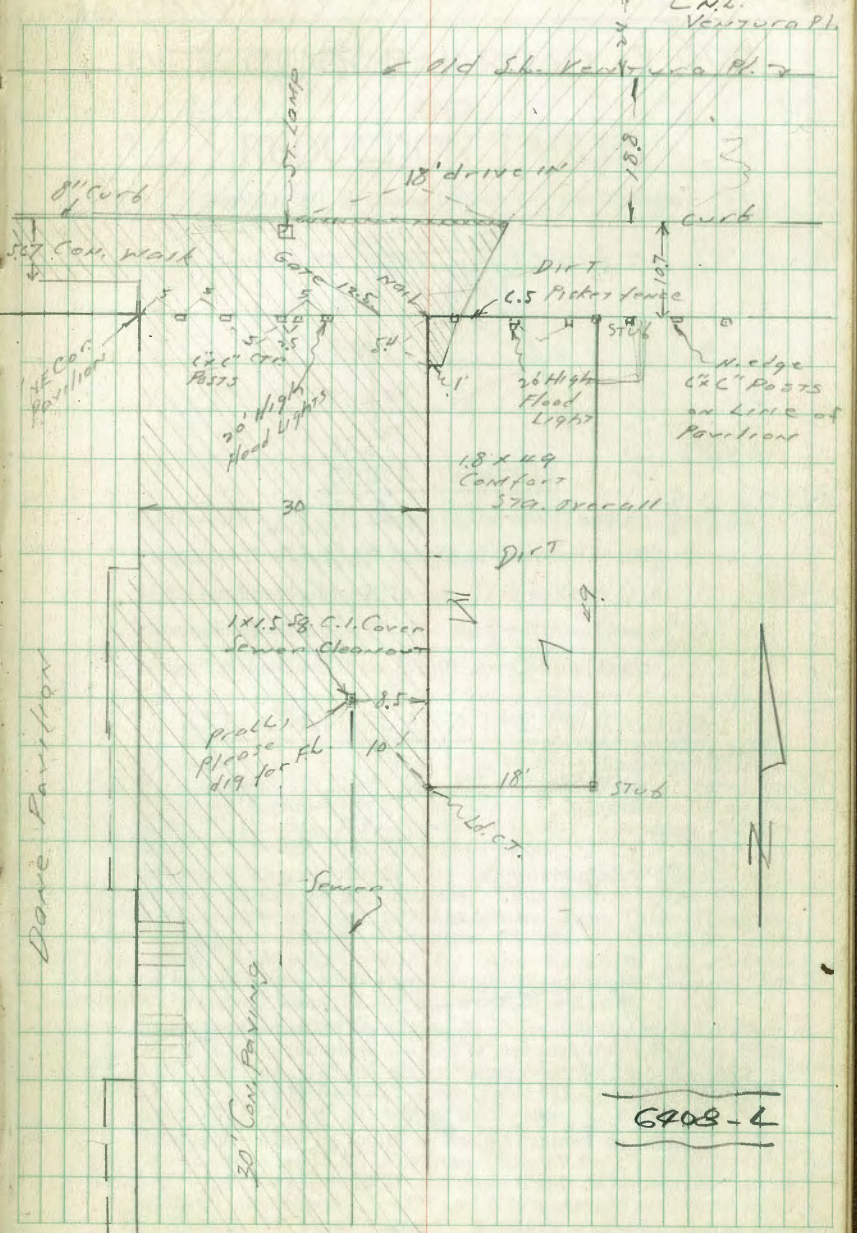 Ventura Pl.
24
Old S.L. Ventura Pl.
St. Lamp
18.8
18' drive in
8" Curb
Curb
5.67 Con. Walk
10.7
Dirt
Gate 12.5
Nail
C.5 Picket fence
5
5
5
5
2.5
Stub
N.E. Cor.
Pavilion
6"x6" Ctr
Posts
5.4
1'
20' High
Flood Lights
20' High
Flood
Light
N. edge
6"x6" Posts
on Line of
Pavilion
18 x 49
Comfort
Sta. overall
30
Dirt
49
1x1.5 Sq. C.I. Cover
Sewer Cleanout
8.5
Please
dig for FL
10
18'
Stub
Ld. & T.
Sewer
Dance Pavilion
30' Con. Paving
N
6408-L